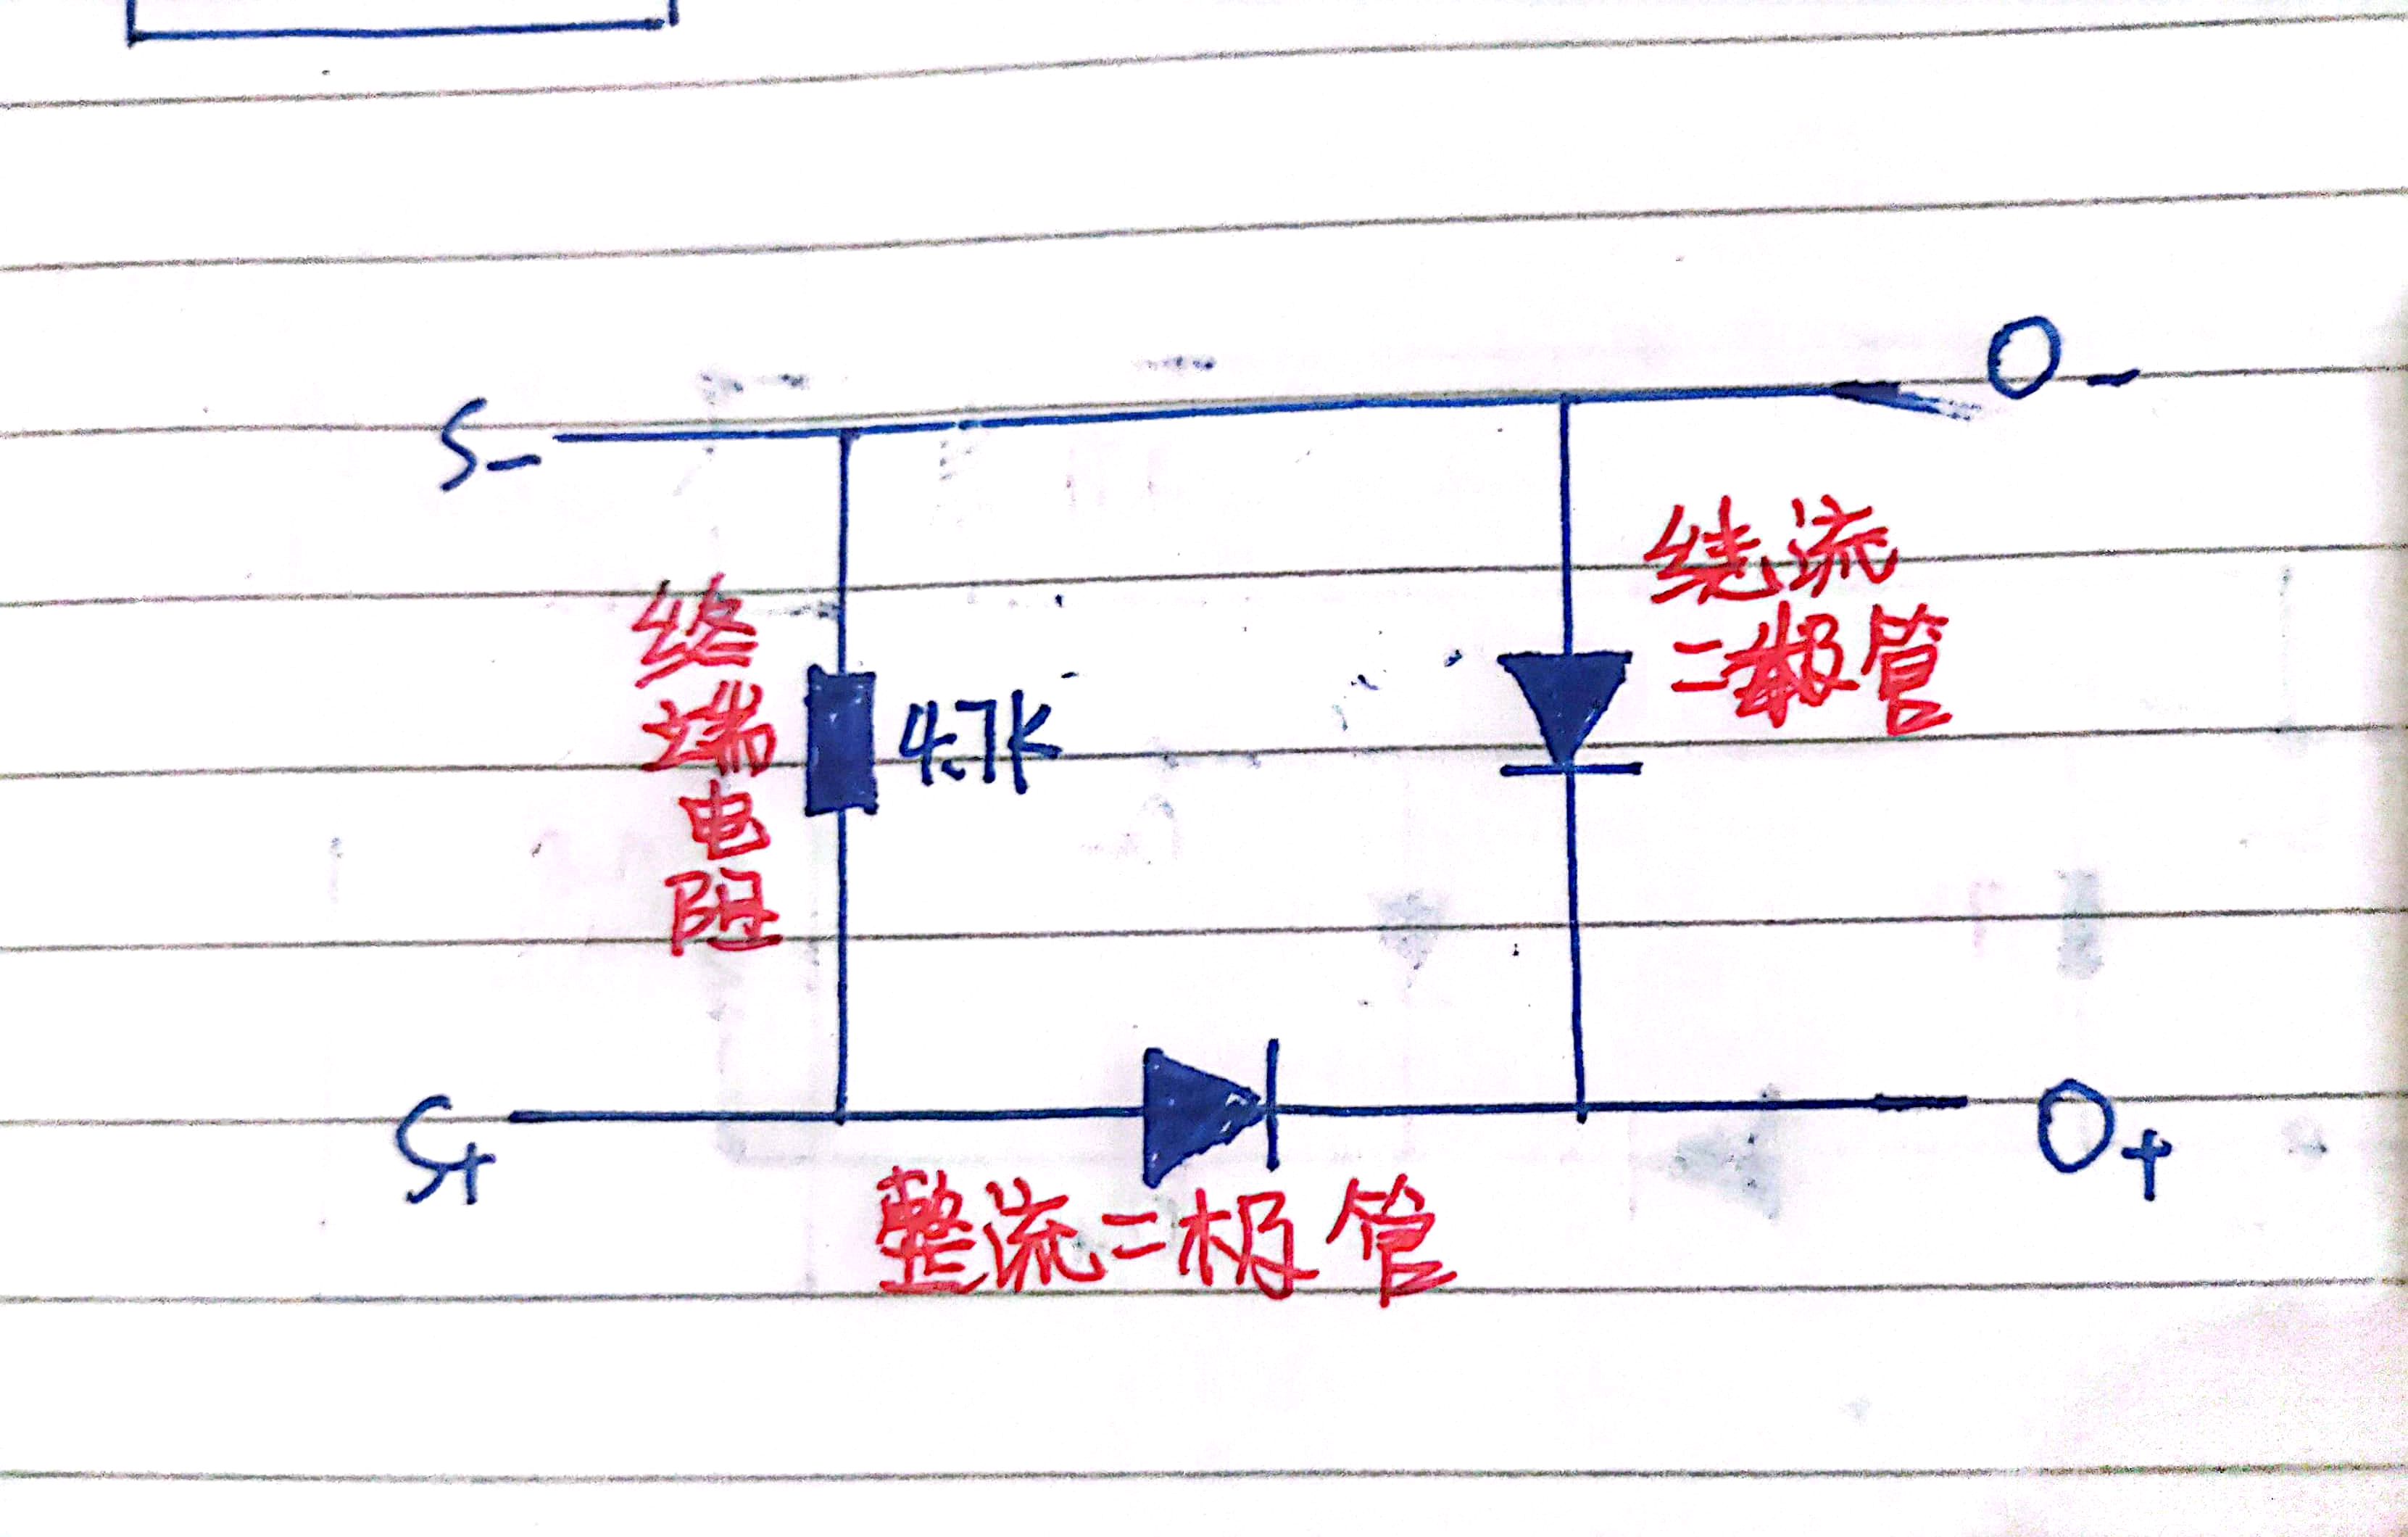 S-
O-
绕流
二极管
终端电阻
4.7K
S+
O+
整流二极管